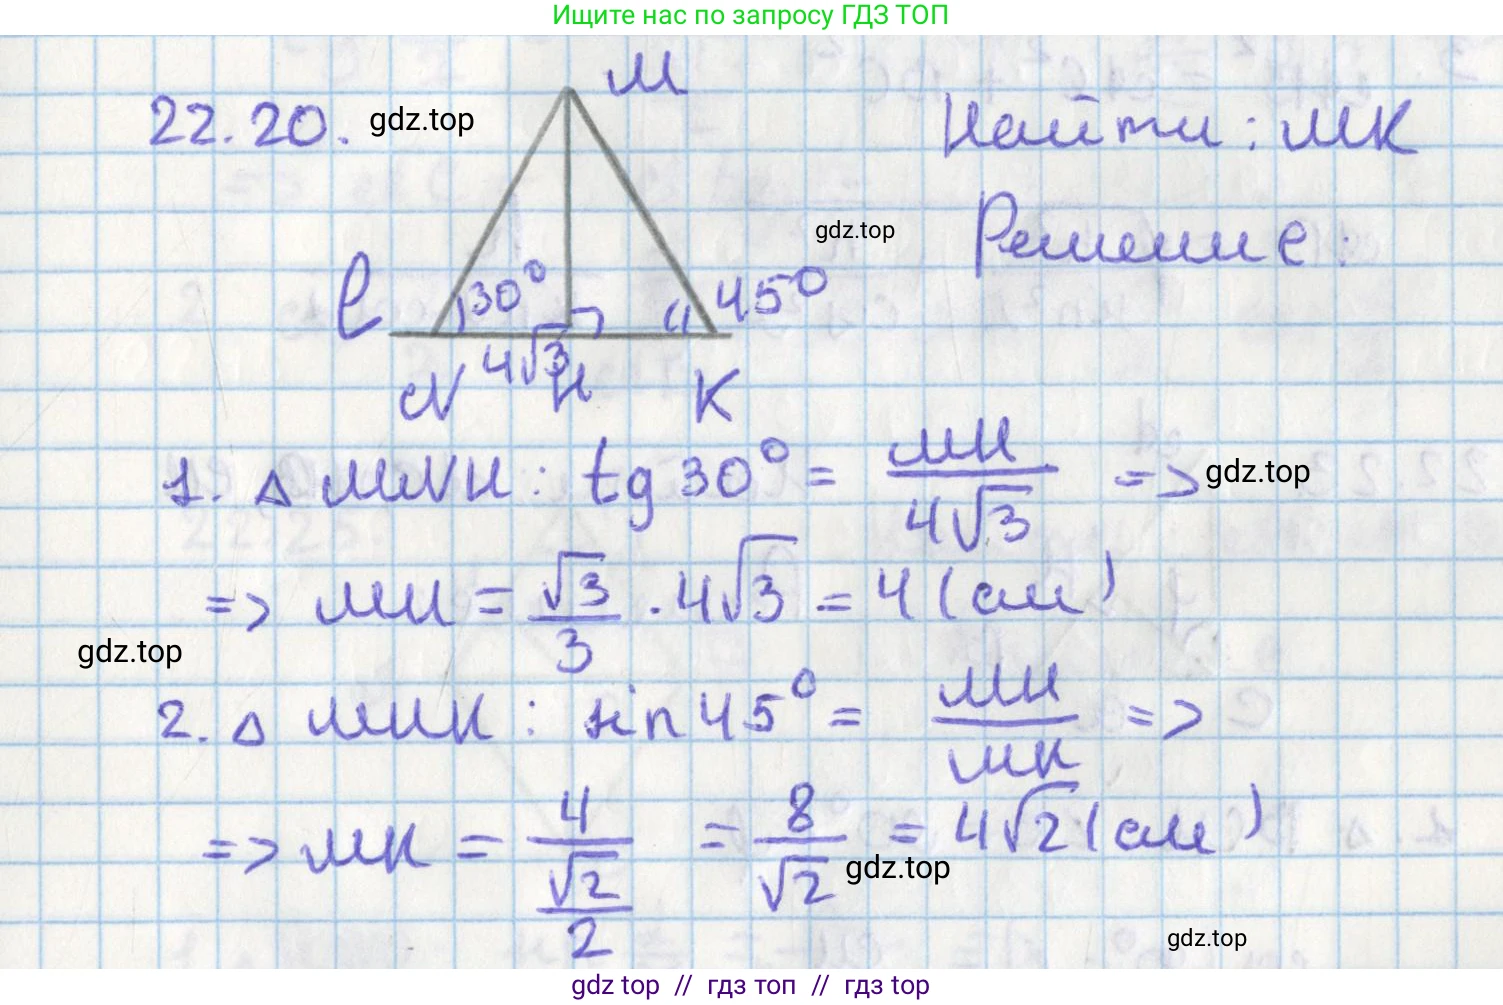 Ищите нас по запросу ГДЗ ТОП
22.20.
gdz.top
M
Найти: MK
gdz.top
Решение:
ℓ
30°
45°
4√3
N
H
K
1. △ MNH: tg 30° = MH / 4√3 =>
gdz.top
=> MH = √3/3 · 4√3 = 4 (см)
gdz.top
2. △ MHK: sin 45° = MH / MK =>
=> MK = 4 / (√2/2) = 8/√2 = 4√2 (см)
gdz.top
gdz.top
gdz top // гдз топ // gdz top